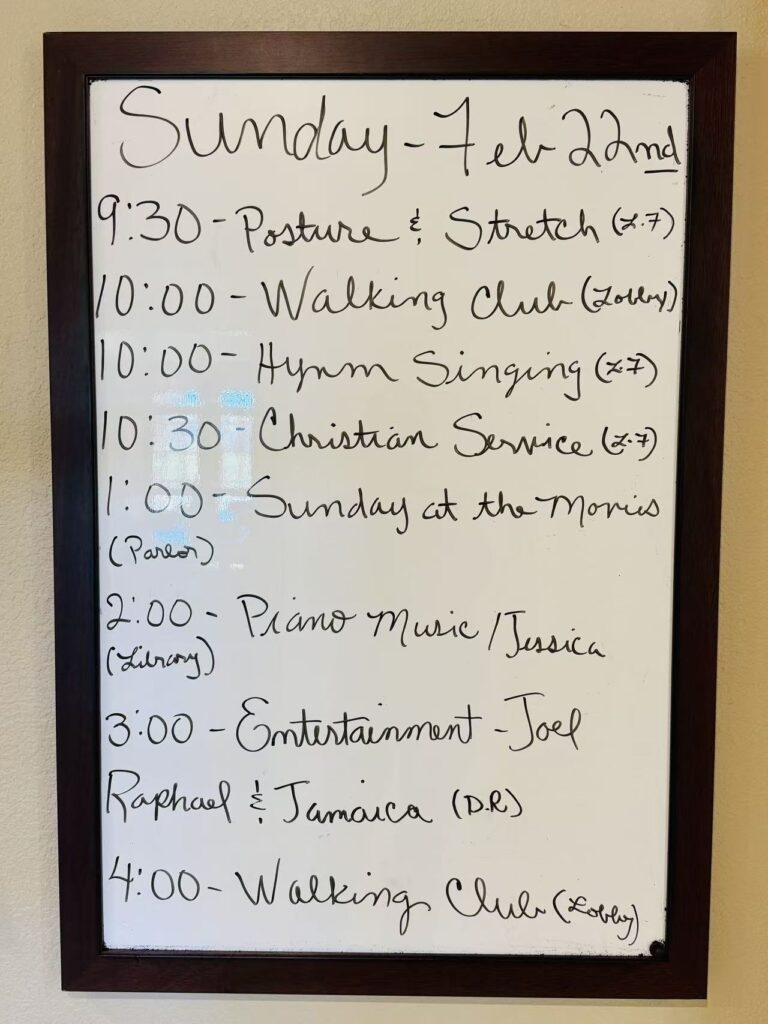 Sunday - Feb 22nd
9:30 - Posture & Stretch (L.F)
10:00 - Walking Club (Lobby)
10:00 - Hynm Singing (LF)
10:30 - Christian Service (L.F)
1:00 - Sunday at the Movies
(Parlor)
2:00 - Piano Music / Jessica
(Library)
3:00 - Entertainment - Joel
Raphael & Jamaica (D.R)
4:00 - Walking Club (Lobby)